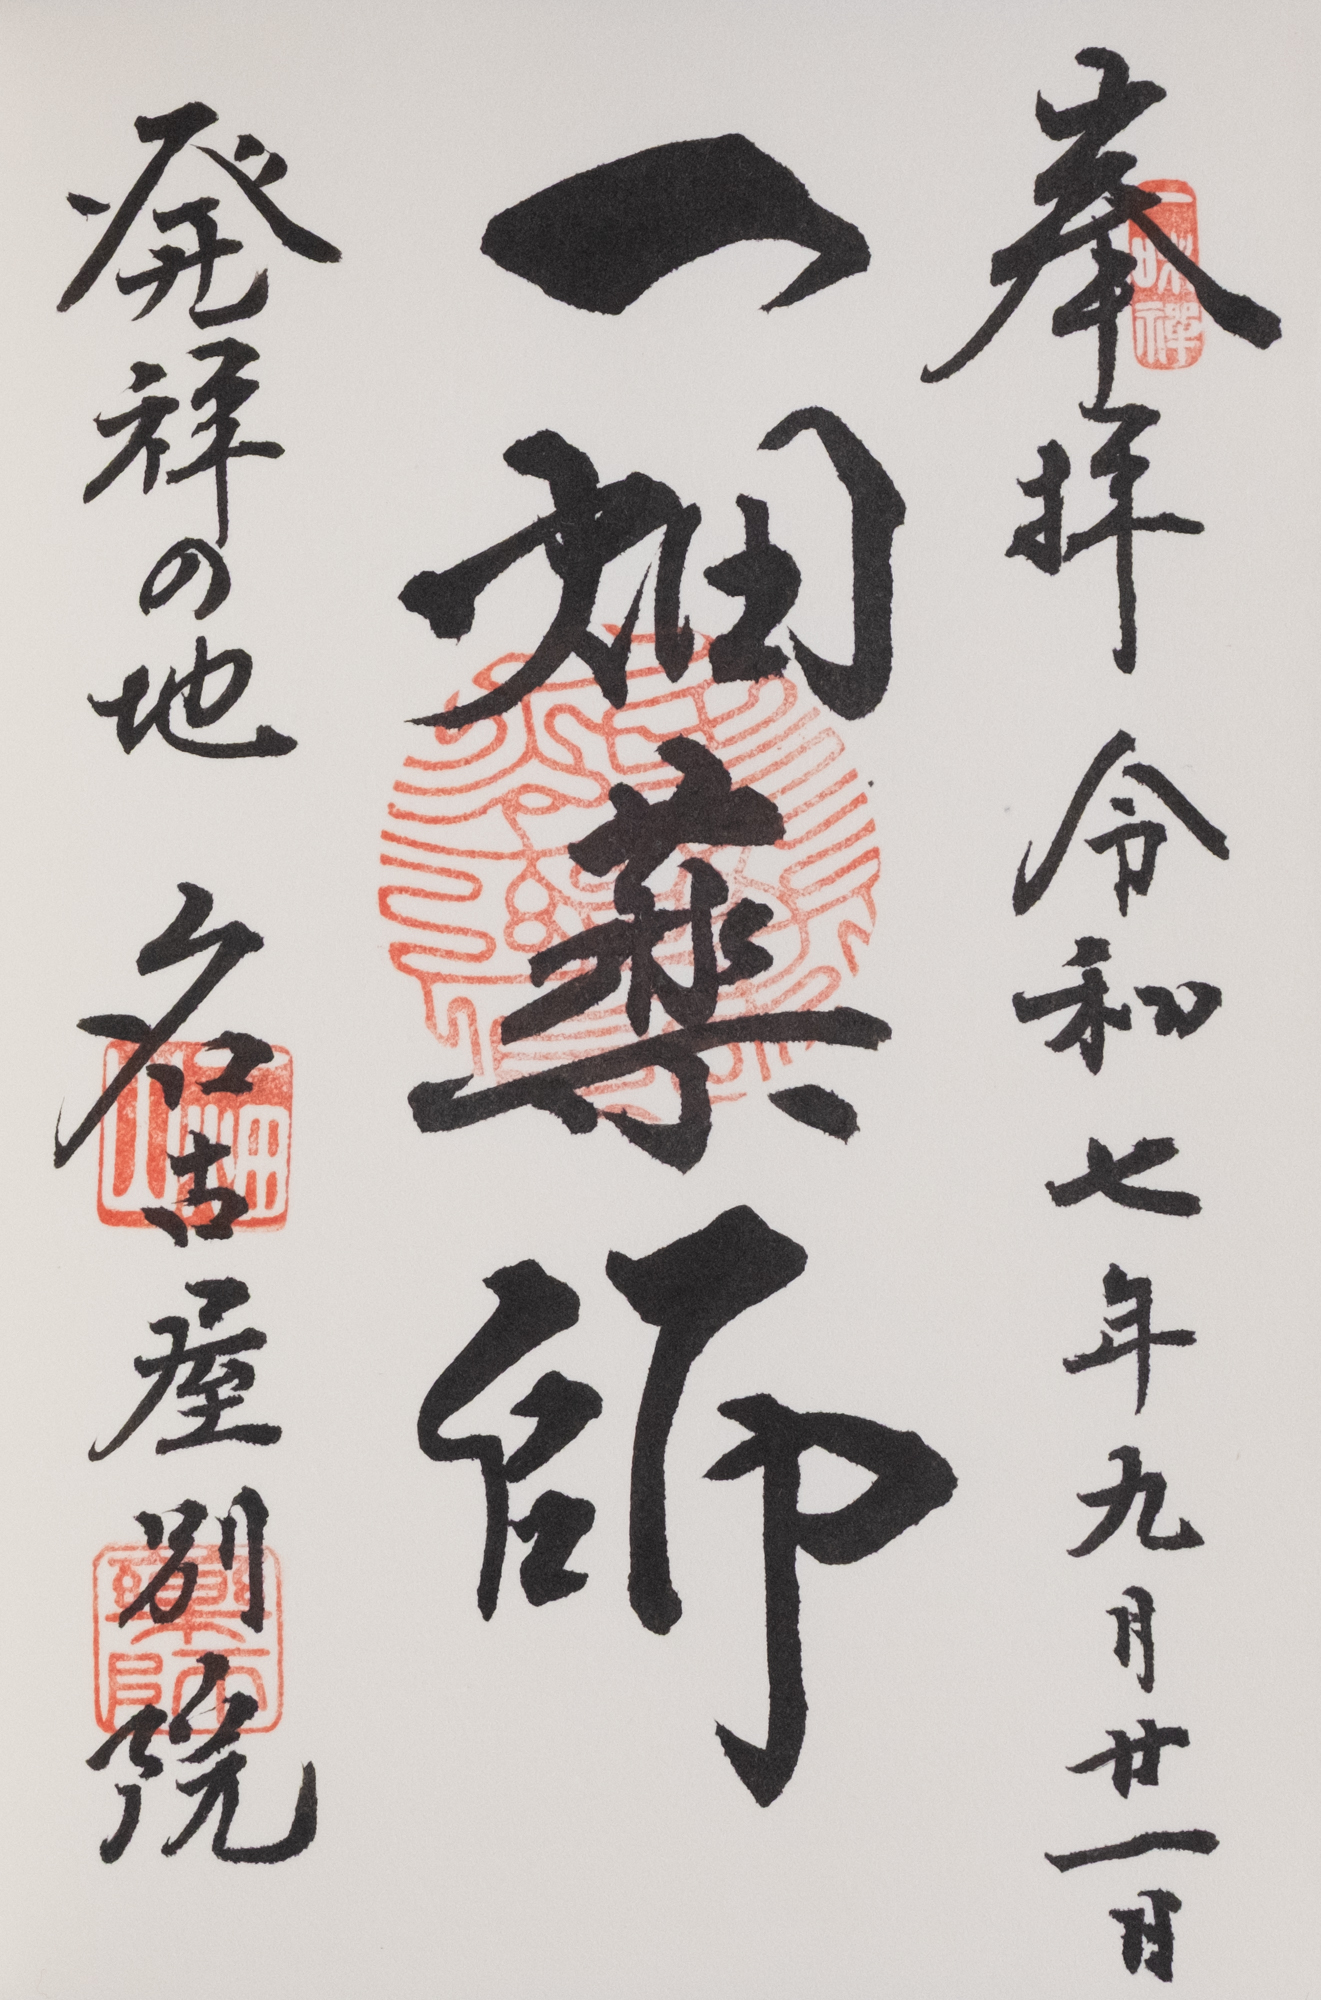 奉拝 令和七年九月廿一日
一畑薬師
発祥の地 名古屋別院
一味禅
一畑山
薬師